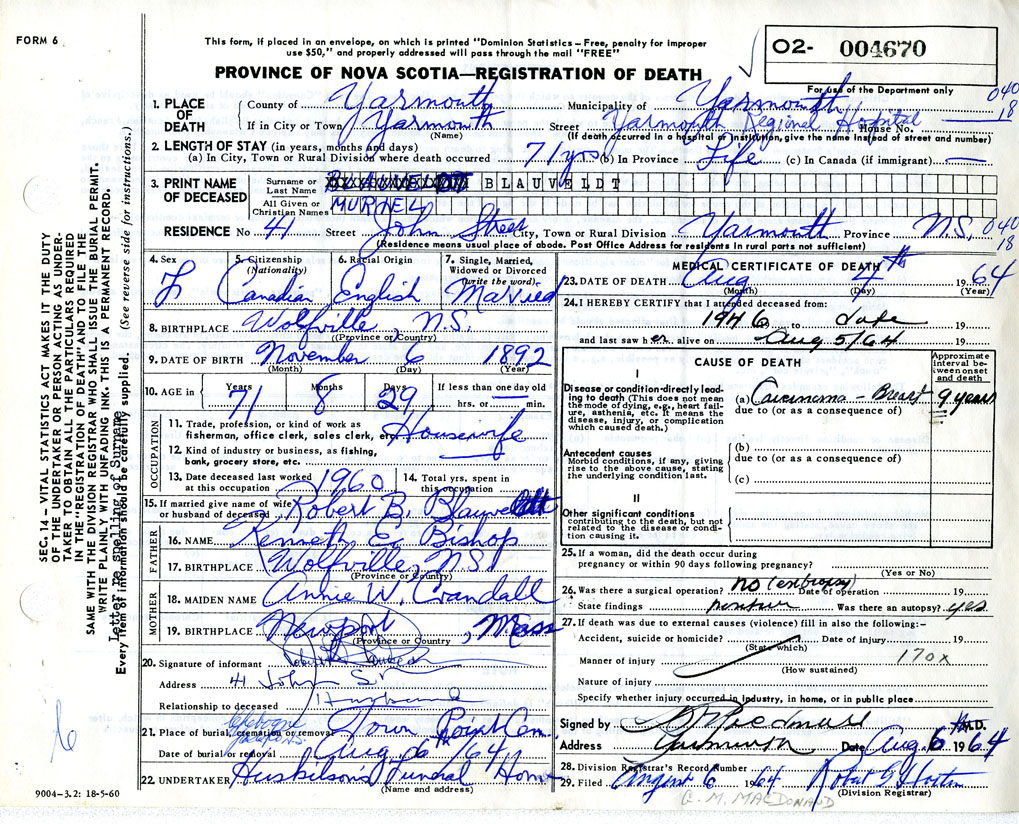 FORM 6
This form, if placed in an envelope, on which is printed "Dominion Statistics – Free, penalty for improper
use $50," and properly addressed will pass through the mail "FREE"
O2- 004670
For use of the Department only
PROVINCE OF NOVA SCOTIA—REGISTRATION OF DEATH
1. PLACE OF DEATH
County of Yarmouth Municipality of Yarmouth 040
If in City or Town Yarmouth Street Yarmouth Regional Hospital House No. 18
(Name) (If death occurred in a hospital or institution, give the name instead of street and number)
2. LENGTH OF STAY (in years, months and days)
(a) In City, Town or Rural Division where death occurred 71 yrs (b) In Province Life (c) In Canada (if immigrant) —
3. PRINT NAME OF DECEASED
Surname or Last Name BLAUVELDT
All Given or Christian Names MURIEL
RESIDENCE No 41 Street John Street City, Town or Rural Division Yarmouth Province N.S. 040
18
(Residence means usual place of abode. Post Office Address for residents in rural parts not sufficient)
4. Sex F
5. Citizenship (Nationality) Canadian
6. Racial Origin English
7. Single, Married, Widowed or Divorced (write the word) Married
8. BIRTHPLACE Wolfville, N.S.
(Province or Country)
9. DATE OF BIRTH November 6 1892
(Month) (Day) (Year)
10. AGE in Years 71 Months 8 Days 29 If less than one day old
hrs. or — min.
OCCUPATION
11. Trade, profession, or kind of work as
fisherman, office clerk, sales clerk, etc. Housewife
12. Kind of industry or business, as fishing,
bank, grocery store, etc. —
13. Date deceased last worked
at this occupation 1960
14. Total yrs. spent in
this occupation
15. If married give name of wife
or husband of deceased Robert B. Blauveldt
FATHER
16. NAME Kenneth E. Bishop
17. BIRTHPLACE Wolfville, N.S.
(Province or Country)
MOTHER
18. MAIDEN NAME Annie W. Crandall
19. BIRTHPLACE Newport, Mass
(Province or Country)
20. Signature of informant
Address 41 John St
Relationship to deceased Husband
21. Place of burial, cremation or removal Town Point Cem.
Chebogue
Date of burial or removal Aug. 6th /64
22. UNDERTAKER Huskilsons Funeral Home
(Name and address)
9004-3.2: 18-5-60
MEDICAL CERTIFICATE OF DEATH
23. DATE OF DEATH Aug 4th 1964
(Month) (Day) (Year)
24. I HEREBY CERTIFY that I attended deceased from:
1946 to date 19
and last saw her alive on Aug 5/64 19
CAUSE OF DEATH
Approximate interval between onset and death
I
Disease or condition directly leading to death (This does not mean the mode of dying, e.g., heart failure, asthenia, etc. It means the disease, injury, or complication which caused death.)
(a) Carcinoma - Breast 9 years
due to (or as a consequence of)
Antecedent causes
Morbid conditions, if any, giving rise to the above cause, stating the underlying condition last.
(b)
due to (or as a consequence of)
(c)
II
Other significant conditions
contributing to the death, but not related to the disease or condition causing it.
25. If a woman, did the death occur during
pregnancy or within 90 days following pregnancy?
(Yes or No)
26. Was there a surgical operation? no Date of operation 19
State findings Was there an autopsy? yes
27. If death was due to external causes (violence) fill in also the following:-
Accident, suicide or homicide? Date of injury 19
(State which)
Manner of injury 170X
(How sustained)
Nature of injury
Specify whether injury occurred in industry, in home, or in public place
Signed by M.D.
Address Yarmouth Date Aug 6 1964
28. Division Registrar's Record Number
29. Filed August 6 1964 Robert
(Division Registrar)
G. M. MACDONALD
SEC. 14 – VITAL STATISTICS ACT MAKES IT THE DUTY
OF THE UNDERTAKER OR PERSON ACTING AS UNDER-
TAKER TO OBTAIN ALL THE PARTICULARS REQUIRED
IN THE "REGISTRATION OF DEATH" AND TO FILE THE
SAME WITH THE DIVISION REGISTRAR WHO SHALL ISSUE THE BURIAL PERMIT.
WRITE PLAINLY WITH UNFADING INK. THIS IS A PERMANENT RECORD.
Letter re spelling of Surname
Every item of information should be carefully supplied. (See reverse side for instructions.)
6